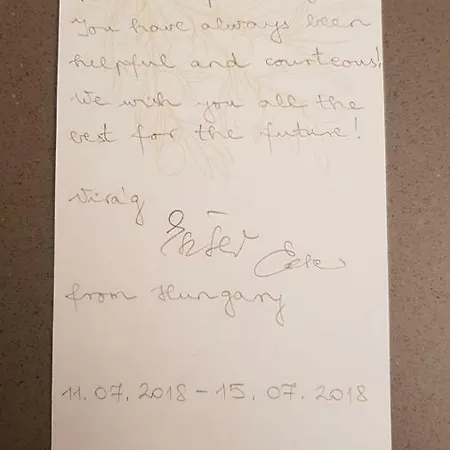 You have always been
helpful and courteous!
We wish you all the
best for the future!
Virág
Eszter
from Hungary
11.07.2018 - 15.07.2018